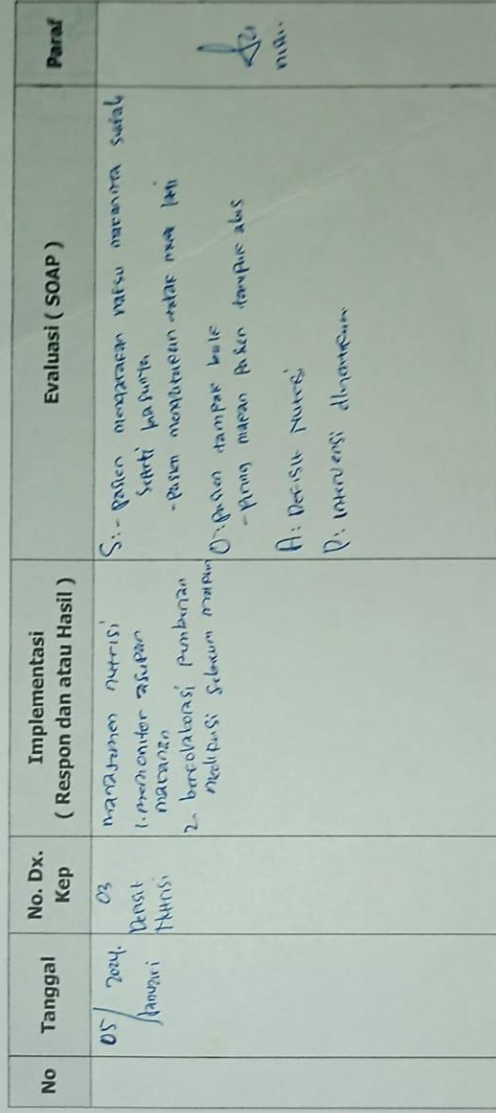 No
Tanggal
No. Dx.
Kep
Implementasi
( Respon dan atau Hasil )
Evaluasi ( SOAP )
Paraf
05/ 2024.
Januari
03
Defisit
Nutrisi
manajemen nutrisi
1. memonitor asupan
makanan
2. berkolaborasi pemberian
medikasi sebelum makan
S: - Pasien mengatakan nafsu makannya sudah
seperti biasanya
- Pasien mengatakan tidak mual lagi
O: - pasien tampak baik
- Piring makan pasien tampak abis
A: Defisit Nutrisi
P: Intervensi dihentikan